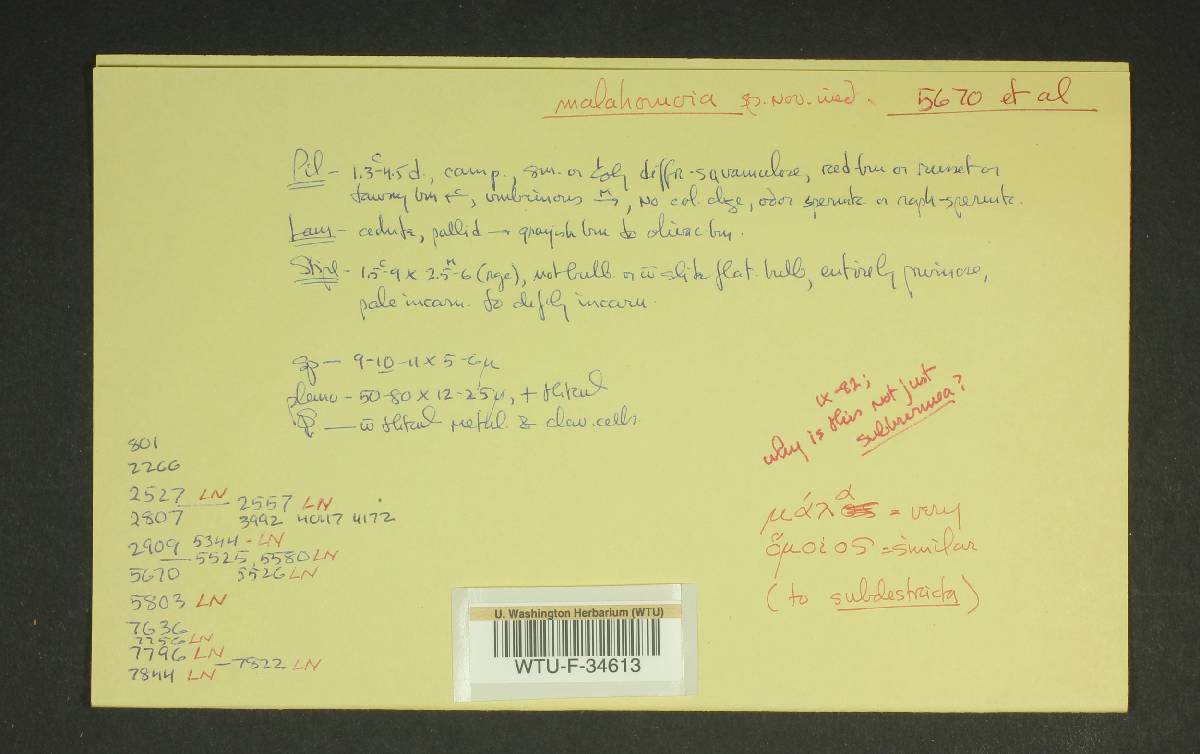 malahomoia sp. nov. ined. 5670 et al
Pil – 1.3-4.5 c d., camp., sm. or diffr.-squamulose, red brn or russet or
tawny brn ←c, umbrinous m→, no col. chge, odor spermtc or raph-spermtc.
Lam – adnate, pallid → grayish brn to olivac brn.
Stipe – 1.5-9 c × 2.5-6 m (age), not bulb. or w̄ slite flat. bulb, entirely pruinose,
pale incarn. to defly incarn.
Sp – 9-10-11 × 5-6µ
pleuro – 50-80 × 12-25µ, + thkwl
w̄ thkwl metul. & clav. cells.
IX-82;
why is this not just
subbrunnea?
μάλα = very
ὅμοιος = similar
(to subdestricta)
801
2266
2527 LN — 2557 LN
2807 3992 4047 4172
2909 5344 - LN
— 5525, 5580 LN
5670 5526 LN
5803 LN
7636
7756 LN
7796 LN
— 7822 LN
7844 LN
U. Washington Herbarium (WTU)
WTU-F-34613